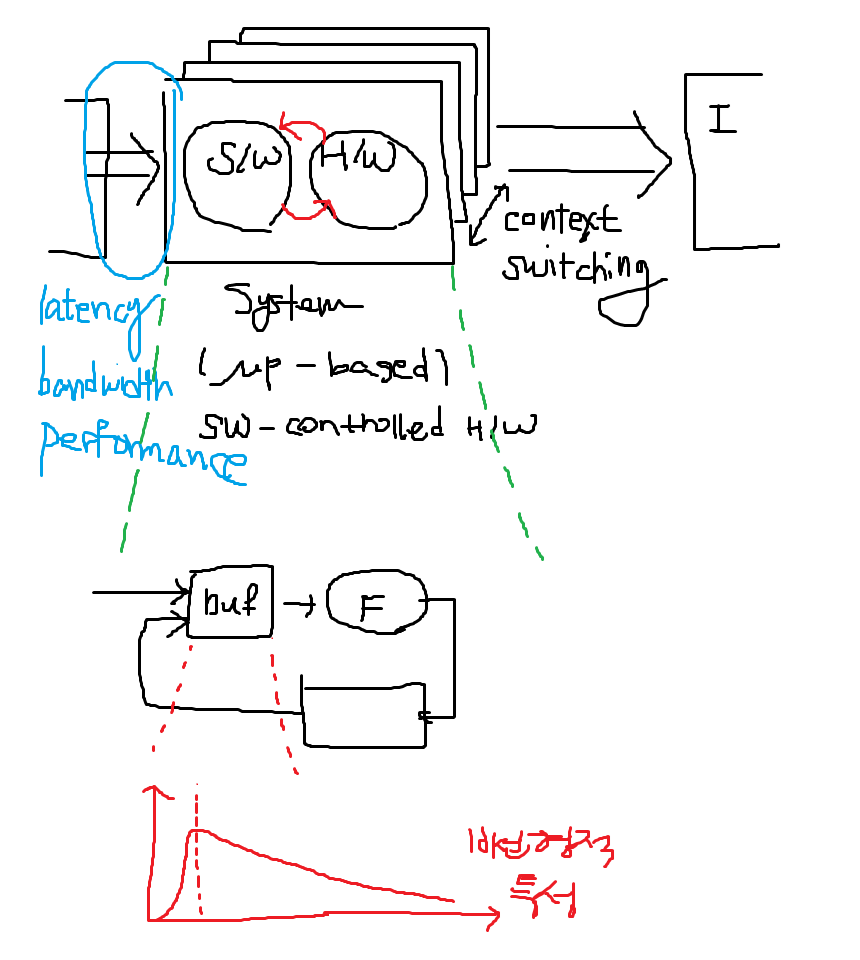 S/W H/W
I
context
switching
latency
bandwidth
performance
System
(μp-based)
SW-controlled H/W
buf
F
비선형적
특성